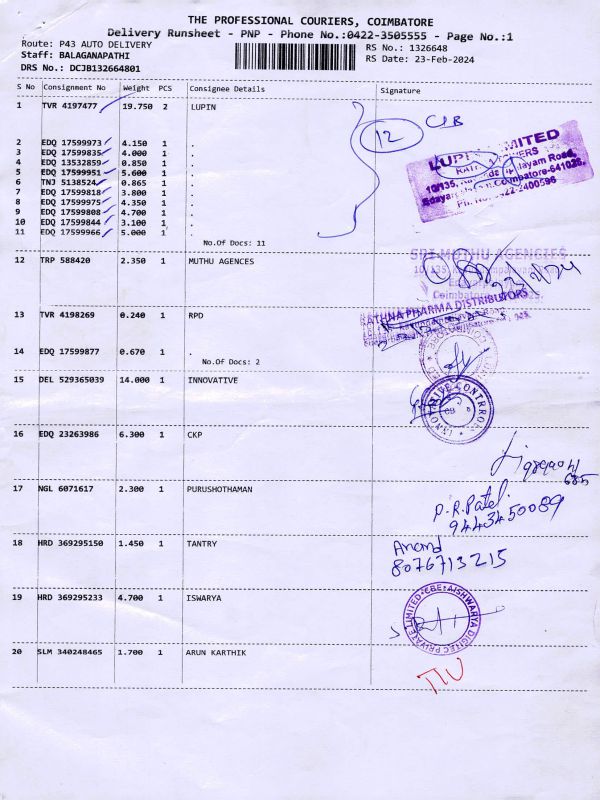 THE PROFESSIONAL COURIERS, COIMBATORE
Delivery Runsheet - PNP - Phone No.:0422-3505555 - Page No.:1
Route: P43 AUTO DELIVERY RS No.: 1326648
Staff: BALAGANAPATHI RS Date: 23-Feb-2024
DRS No.: DCJB132664801
S No Consignment No Weight PCS Consignee Details Signature
1 TVR 4197477 19.750 2 LUPIN
12 CIB
2 EDQ 17599973 4.150 1 .
3 EDQ 17599835 4.000 1 .
4 EDQ 13532859 0.850 1 .
5 EDQ 17599951 5.600 1 .
6 TNJ 5138524 0.865 1 .
7 EDQ 17599818 3.800 1 .
8 EDQ 17599975 4.350 1 .
9 EDQ 17599808 4.700 1 .
10 EDQ 17599844 3.100 1 .
11 EDQ 17599966 5.000 1 .
No.Of Docs: 11
LUPIN LIMITED
12 TRP 588420 2.350 1 MUTHU AGENCES
SRI MUTHU AGENCIES
23/2/24
13 TVR 4198269 0.240 1 RPD
RATHNA PHARMA DISTRIBUTORS
14 EDQ 17599877 0.670 1 .
No.Of Docs: 2
15 DEL 529365039 14.000 1 INNOVATIVE
16 EDQ 23263986 6.300 1 CKP
685
17 NGL 6071617 2.300 1 PURUSHOTHAMAN
P.R.Patel.
9443450089
18 HRD 369295150 1.450 1 TANTRY
Anand
8076713215
19 HRD 369295233 4.700 1 ISWARYA
AISHWARYA DIGITEC PRIVATE LIMITED CBE
20 SLM 340248465 1.700 1 ARUN KARTHIK